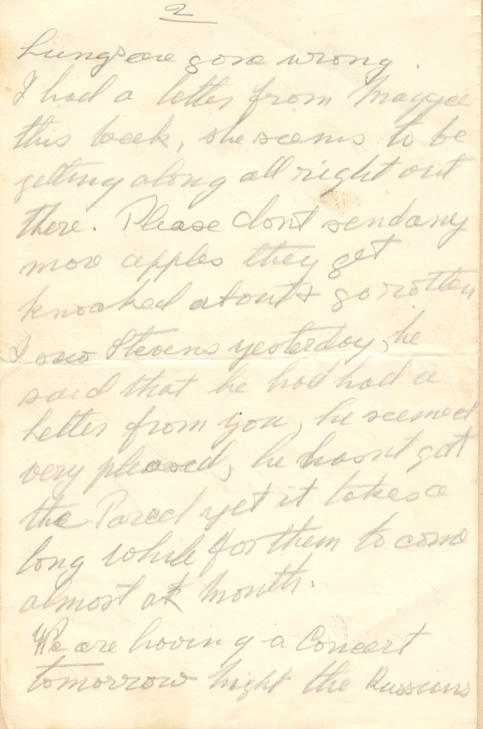 2
Lungs are gone wrong.
I had a letter from Maggie
this week, she seems to be
getting along all right out
there. Please dont send any
more apples they get
knocked about & go rotten
I saw Stevens yesterday, he
said that he had had a
letter from you, he seemed
very pleased, he hasnt got
the Parcel yet it takes a
long while for them to come
almost a month.
We are having a Concert
tomorrow night the Russians